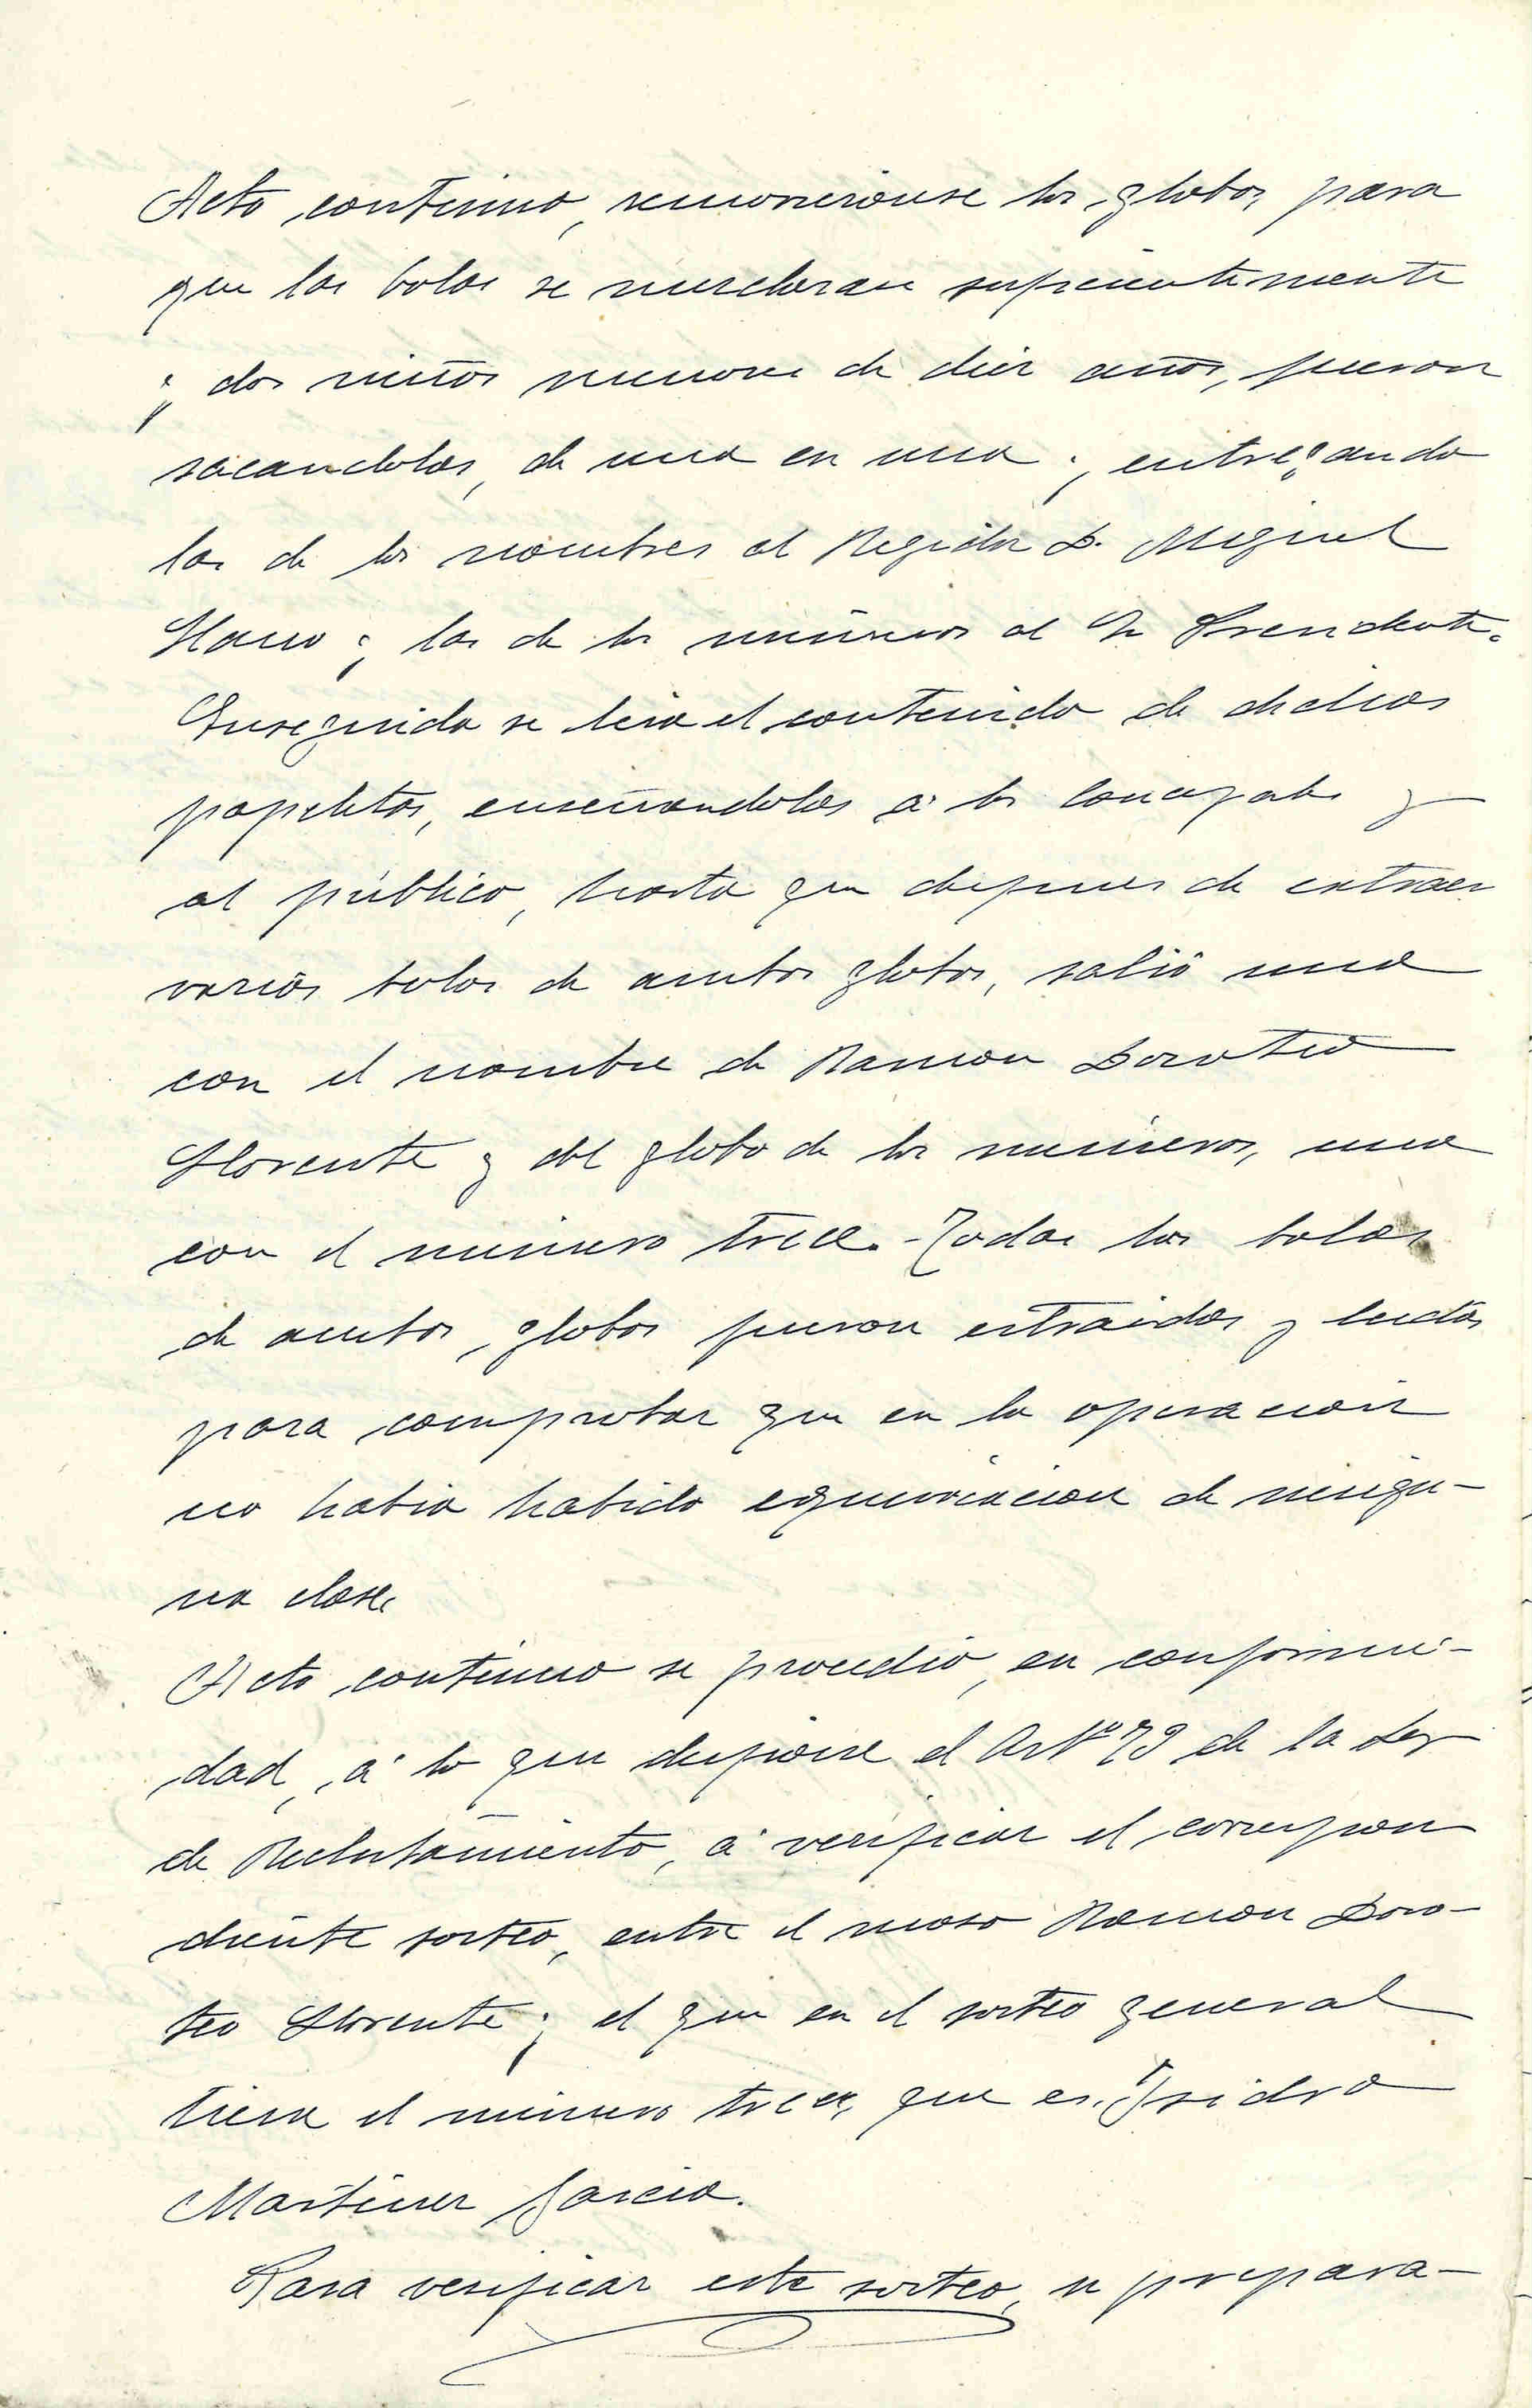 Acto continuo, removieronse los globos para
que las bolas se mezclaran suficientemente
y dos niños menores de diez años, fueron
sacandolas, de una en una y entregando
las de los nombres al Regidor D. Miguel
y las de los números al Sr Presidente.
Enseguida se leia el contenido de dichas
papeletas, enseñandolas á los Concejales y
al público, hasta que despues de extraer
varias bolas de ambos globos, salió una
con el nombre de Ramon Doroteo
Llorente y del globo de los números, una
con el número trece. - Todas las bolas
de ambos globos fueron estraidas y leidas
para comprobar que en la operación
no habia habido equivocacion de ningu-
na clase.
Acto continuo se procedio, en conformi-
dad, á lo que dispone el Artº 79 de la Ley
de Reclutamiento, á verificar el correspon
diente sorteo, entre el mozo Ramon Doro-
teo Llorente y el que en el sorteo general
tiene el número trece, que es Isidro
Martinez Garcia.
Para verificar este sorteo, se prepara-